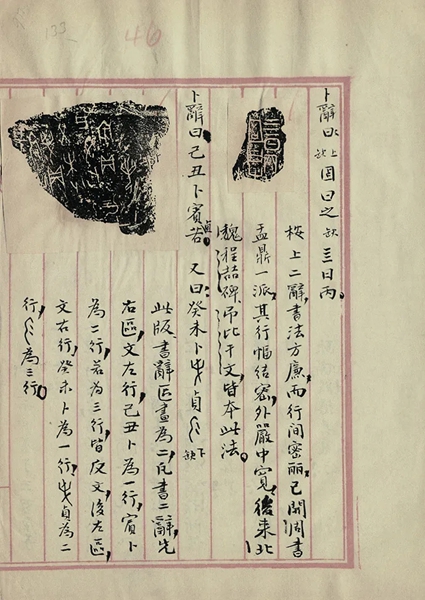 133
46
卜辭曰上缺固曰之缺三日丙。
按上二辭書法方廉而行間密麗已開周書
盂鼎一派其行幅結密外嚴中寬後來北
魏程喆碑弔比干文皆本此法。
卜辭曰己丑卜賓貞若 又曰癸未卜貞下缺
此版書辭區畫為二書二辭先
右區文左行己丑卜為一行賓卜
為二行若為三行皆反文後左區
文右行癸未卜為一行貞為二
行為三行。